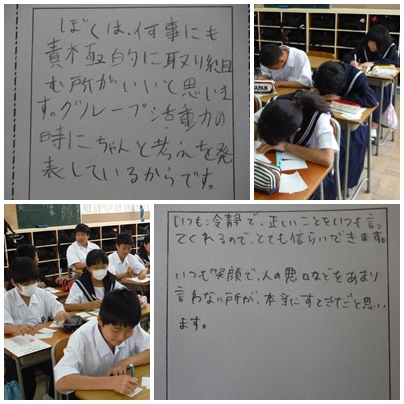 ぼくは、何事にも
責極的に取り組
む所がいいと思いま
す。グループ活動の
時にちゃんと考えを発
表しているからです。
JAPAN
いつも冷静で、正しいことをいつも言っ
てくれるので、とても信らいできます。
いつも笑顔で、人の悪口などをあまり
言わない所が、本当にすてきだと思い
ます。